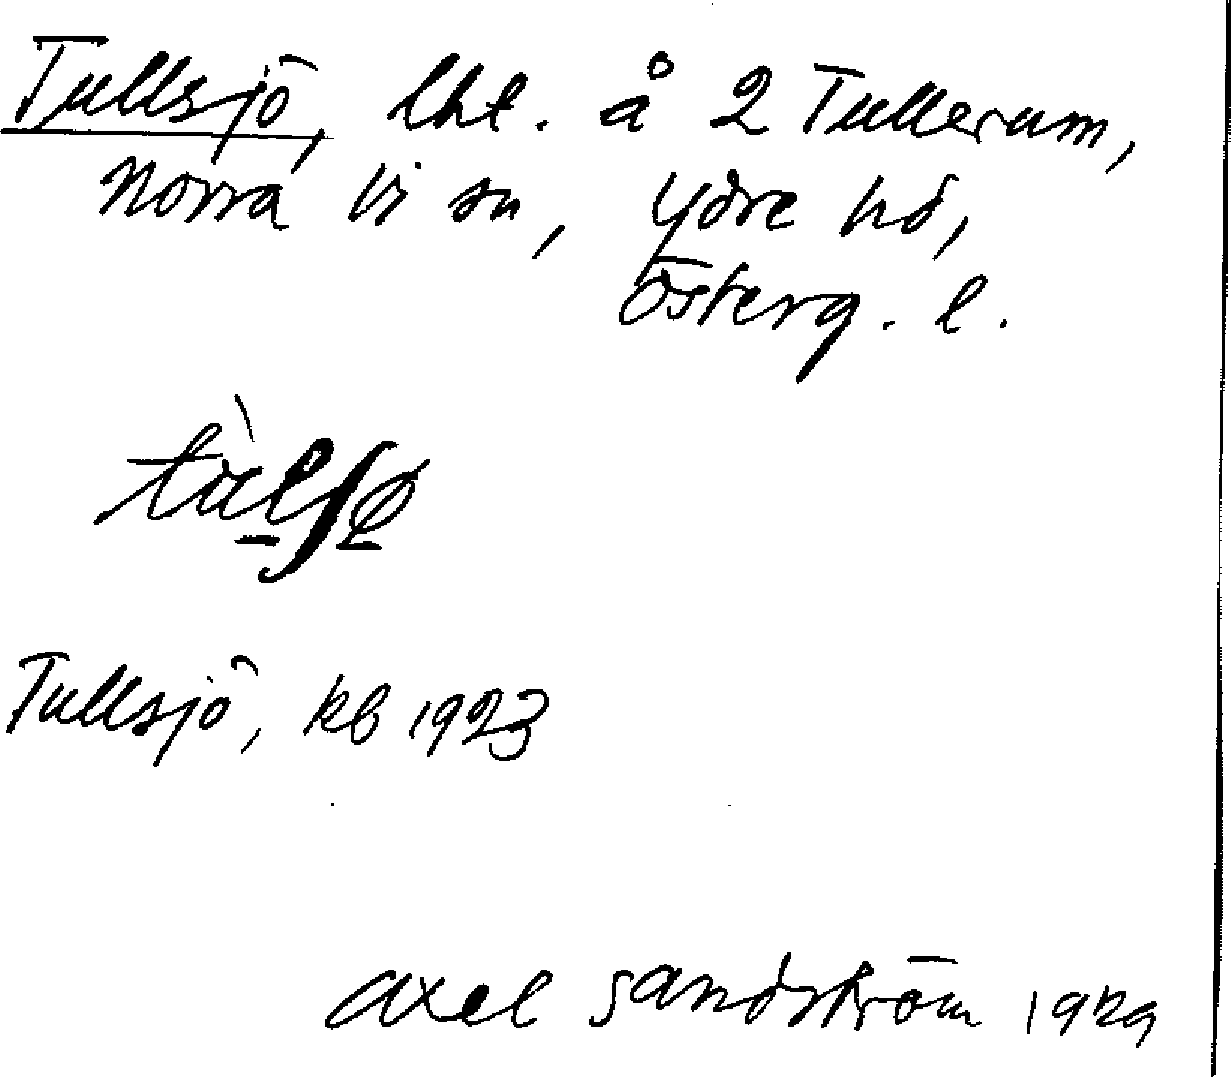 Tullsjö, lht. å 2 Tullerum,
Norra Vi sn, Ydre hd,
Österg. l.
Tullsjö, kb 1923
Axel Sandström 1929